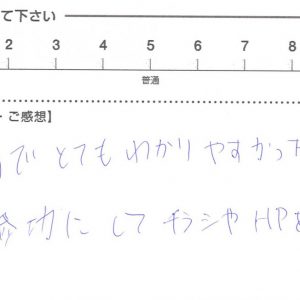 て下さい
2 3 4 5 6 7 8
普通
・ご感想】
でとてもわかりやすかった
にしてチラシやHPを